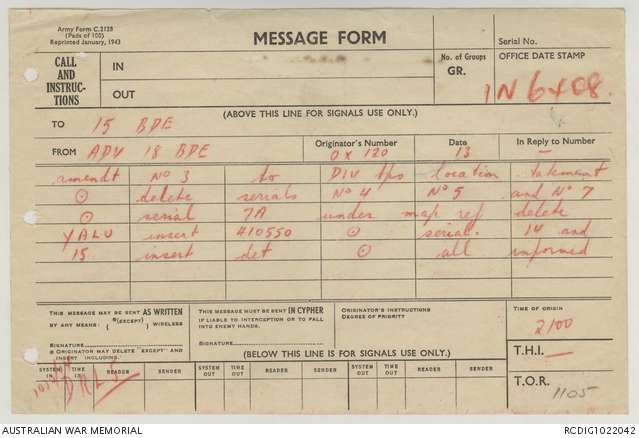 Army Form C.2128
(Pads of 100)
Reprinted January, 1943
MESSAGE FORM
Serial No.
CALL AND INSTRUC- TIONS
IN
OUT
No. of Groups
GR.
OFFICE DATE STAMP
IN 6408
(ABOVE THIS LINE FOR SIGNALS USE ONLY.)
TO 15 BDE
FROM ADV 18 BDE
Originator's Number OX 120
Date 13
In Reply to Number —
amendt No 3 to DIV tps location statement
⊙ delete serials No 4 No 5 and No 7
⊙ serial 7A under map ref delete
YALU insert 410550 ⊙ serial. 14 and
15 insert det ⊙ all informed
THIS MESSAGE MAY BE SENT AS WRITTEN
BY ANY MEANS: *(EXCEPT) WIRELESS
SIGNATURE
* ORIGINATOR MAY DELETE "EXCEPT" AND
INSERT INCLUDING.
THIS MESSAGE MUST BE SENT IN CYPHER
IF LIABLE TO INTERCEPTION OR TO FALL
INTO ENEMY HANDS.
SIGNATURE
ORIGINATOR'S INSTRUCTIONS
DEGREE OF PRIORITY
TIME OF ORIGIN
2100
(BELOW THIS LINE IS FOR SIGNALS USE ONLY.)
T.H.I. —
SYSTEM IN TIME IN READER SENDER SYSTEM OUT TIME OUT READER SENDER SYSTEM OUT TIME OUT READER SENDER
T.O.R. 1105
AUSTRALIAN WAR MEMORIAL
RCDIG1022042